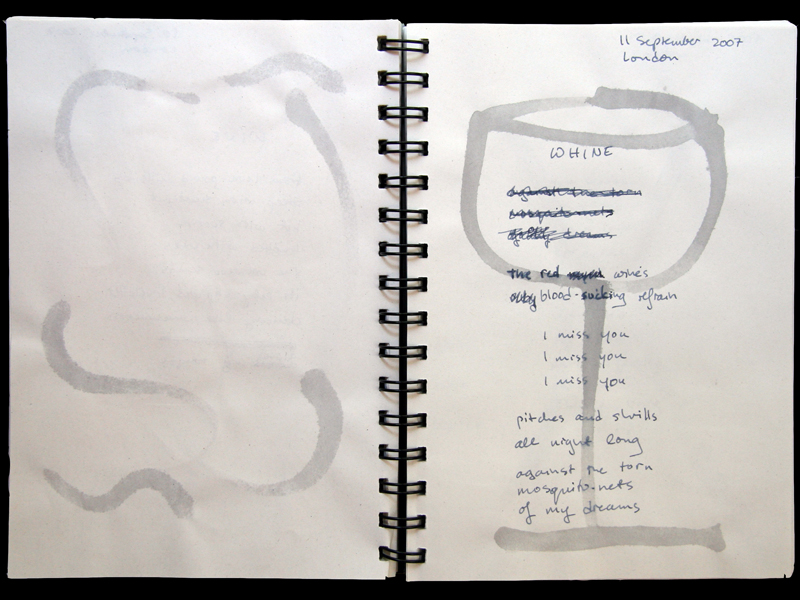 11 September 2007
London
WHINE
against the torn
mosquito-nets
dreams
the red wine's
blood-sucking refrain
I miss you
I miss you
I miss you
pitches and shrills
all night long
against the torn
mosquito-nets
of my dreams